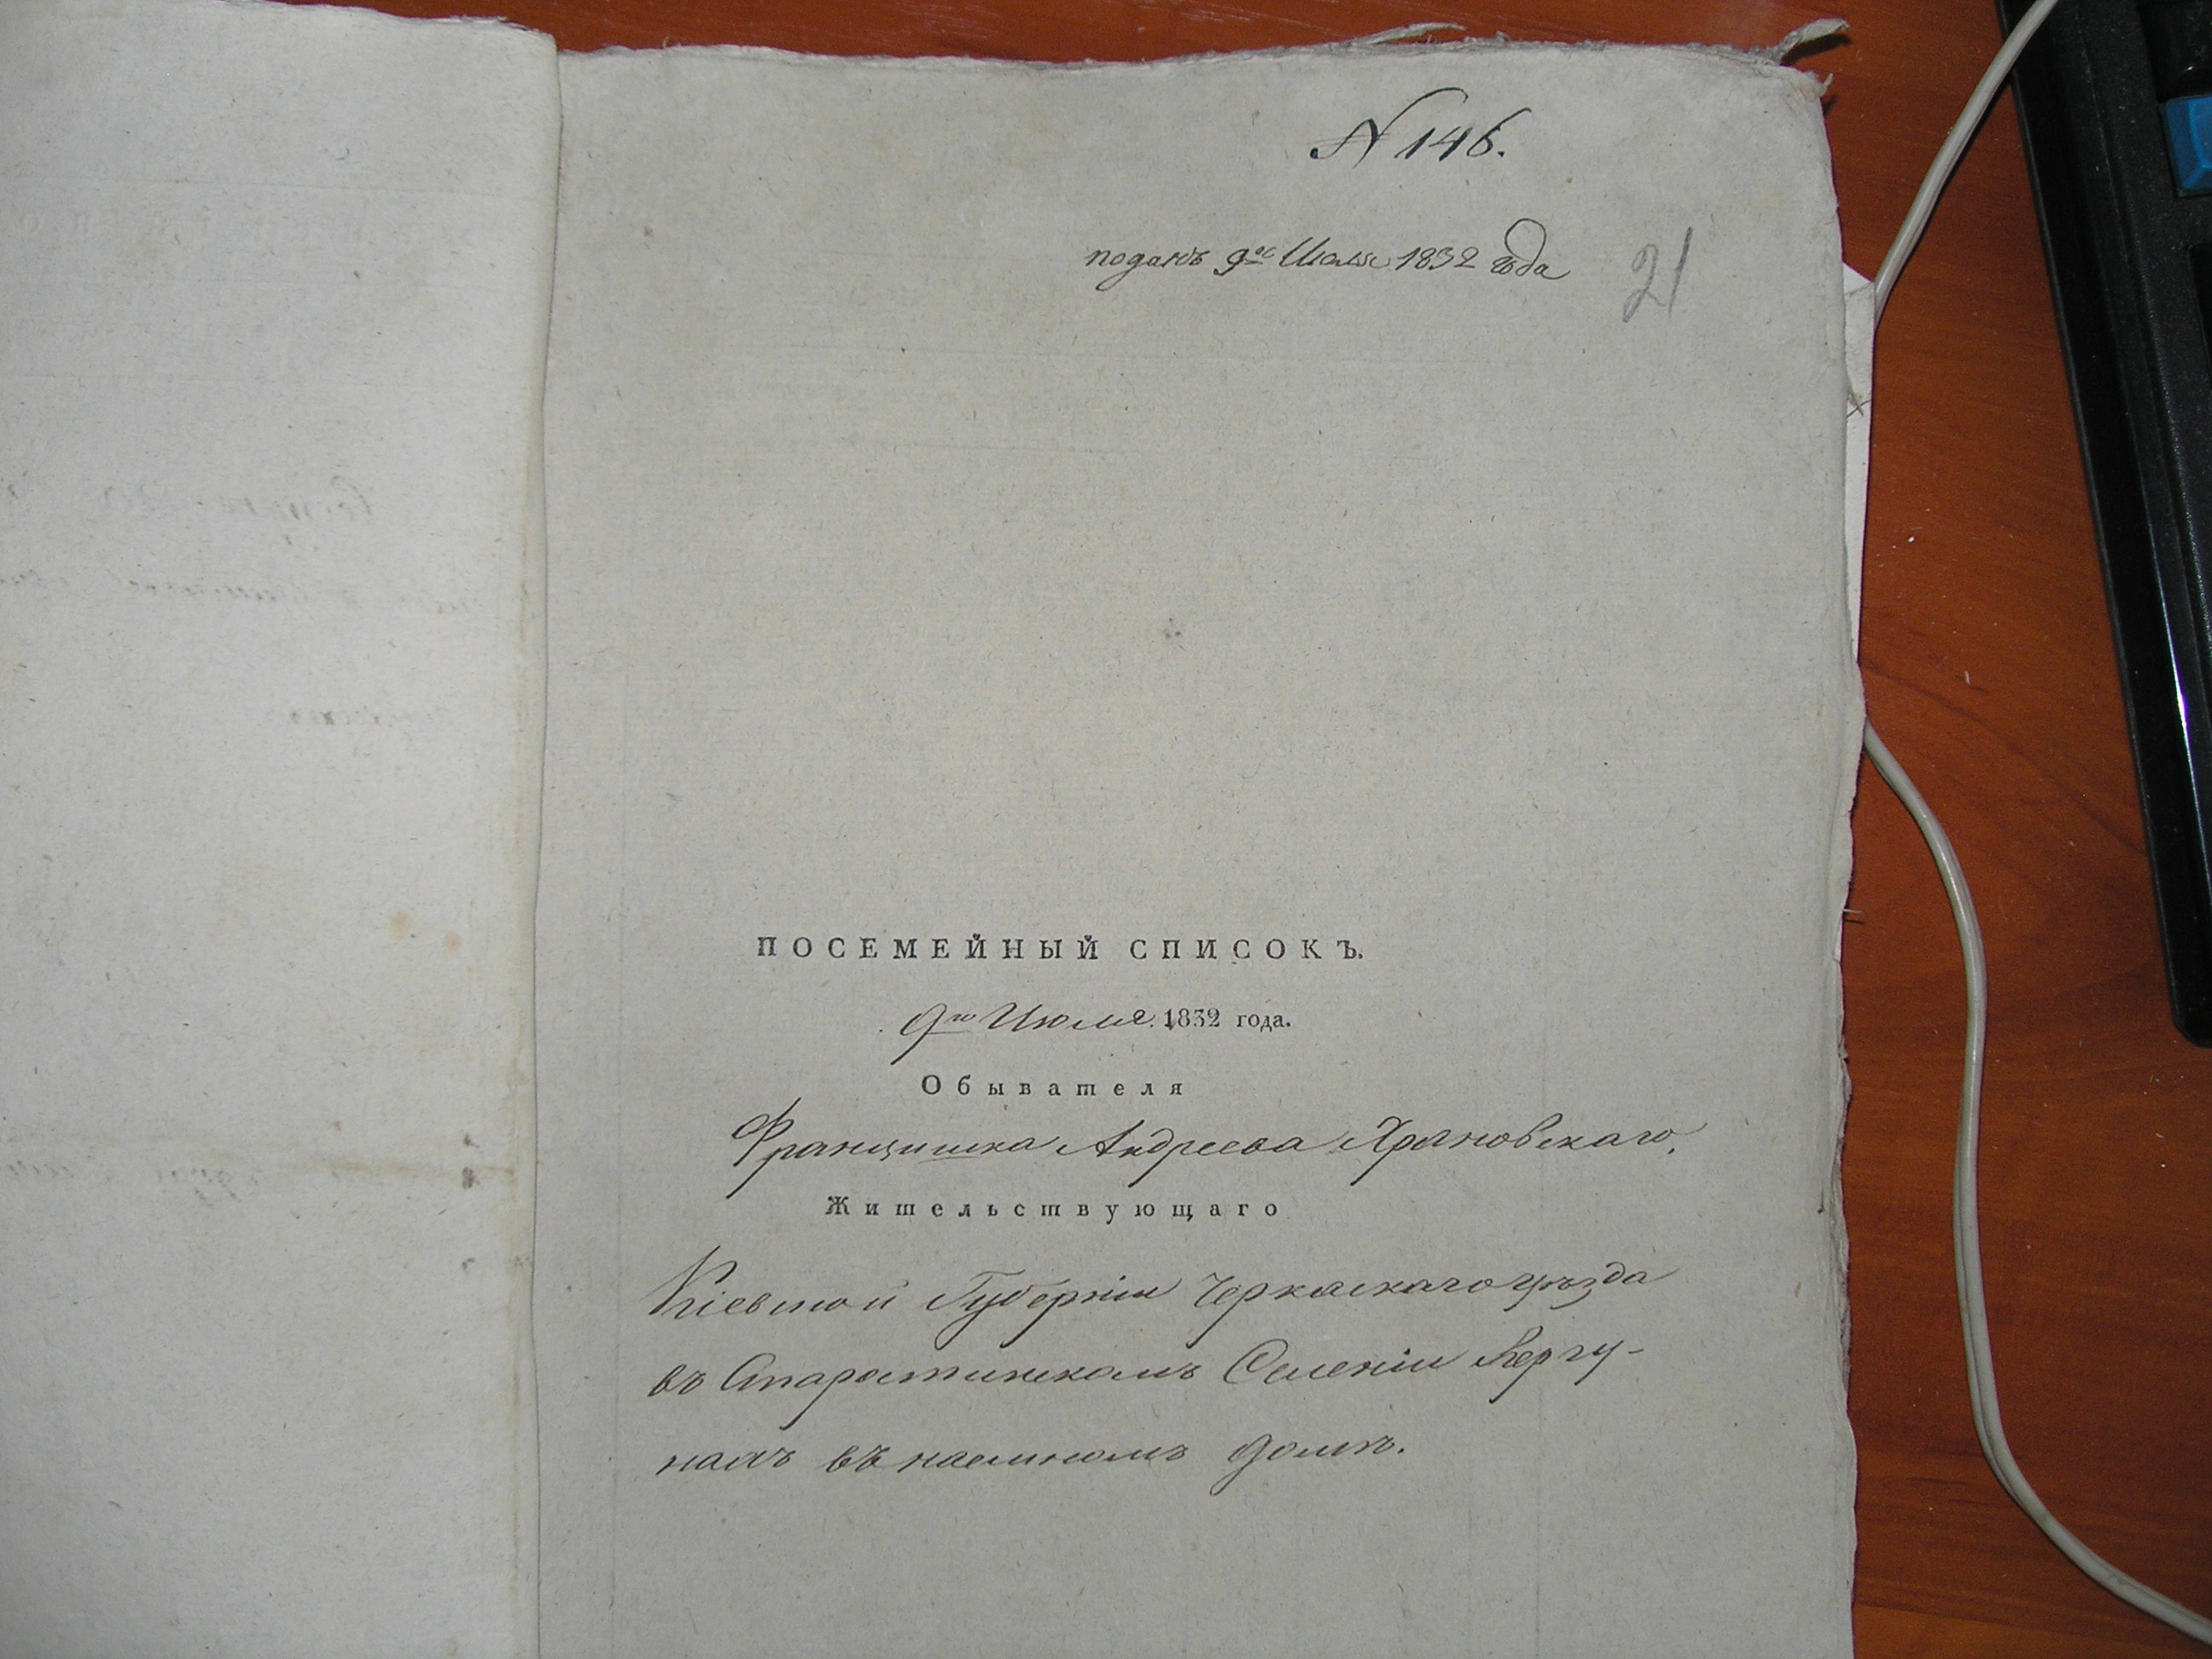 N 146.
поданъ 9го Июля 1832 года
21
ПОСЕМЕЙНЫЙ СПИСОКЪ.
9го Июля 1832 года.
Обывателя
Францишка Андреева Храновскаго.
Жительствующаго
Кіевской Губерніи Черкаскаго уѣзда
въ Старостинскомъ Селеніи Вергу-
нахъ въ наемномъ домѣ.